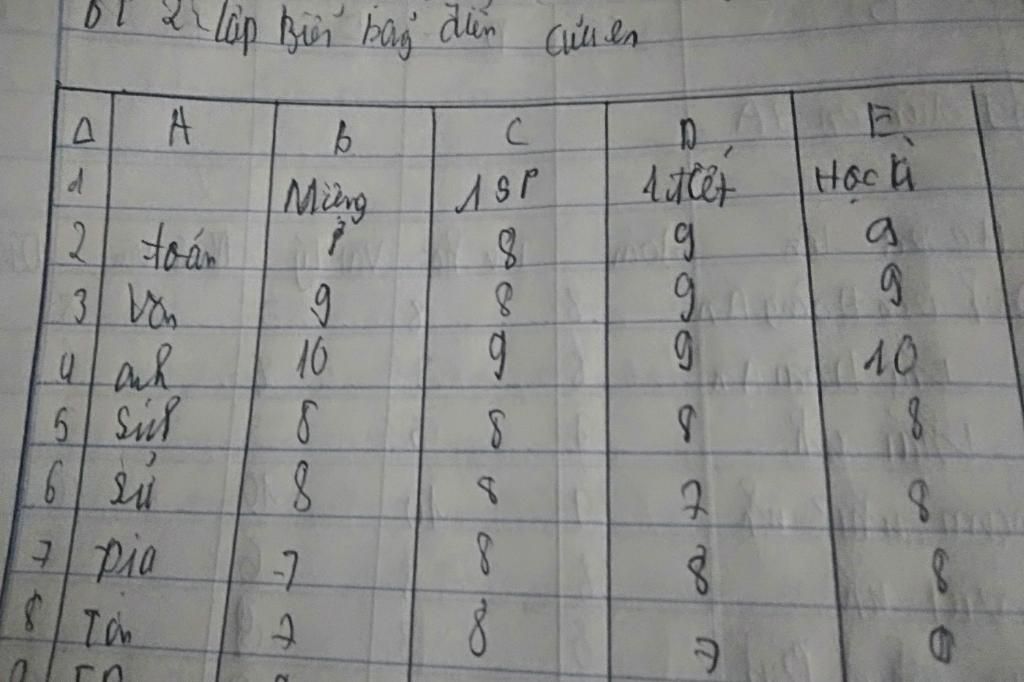 BT 2: lập Biểu bảng điểm của em
A B C D E
1 Miệng 15P 1 tiết Học kì
2 toán 8 9 9
3 Văn 9 8 9 9
4 anh 10 9 9 10
5 Sinh 8 8 8 8
6 Sử 8 8 7 8
7 Địa 7 8 8 8
8 Tin 7 8 7